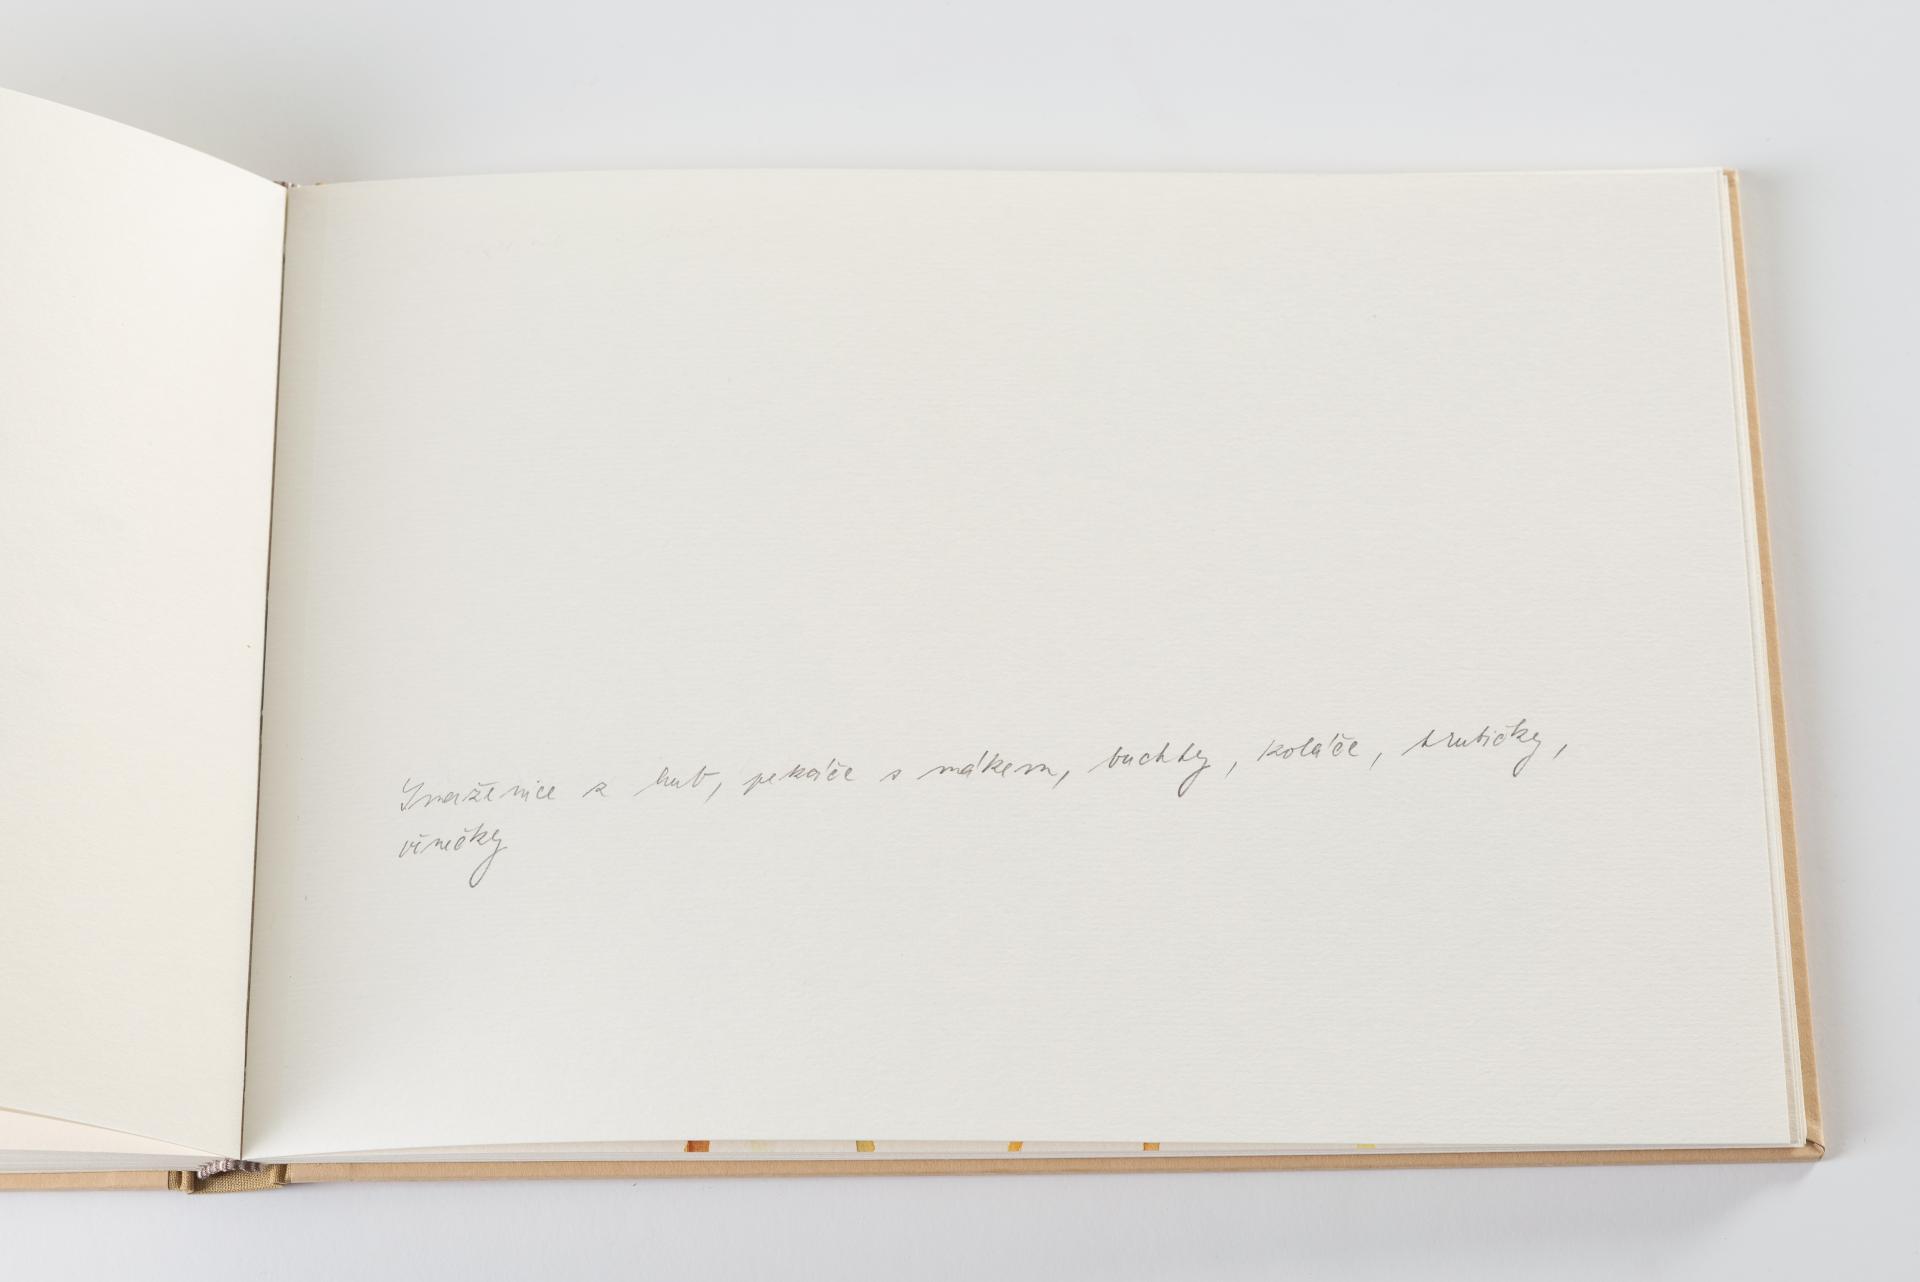 Smaženice z hub, pekáče s mákem, buchty, koláče, trubičky,
věnečky